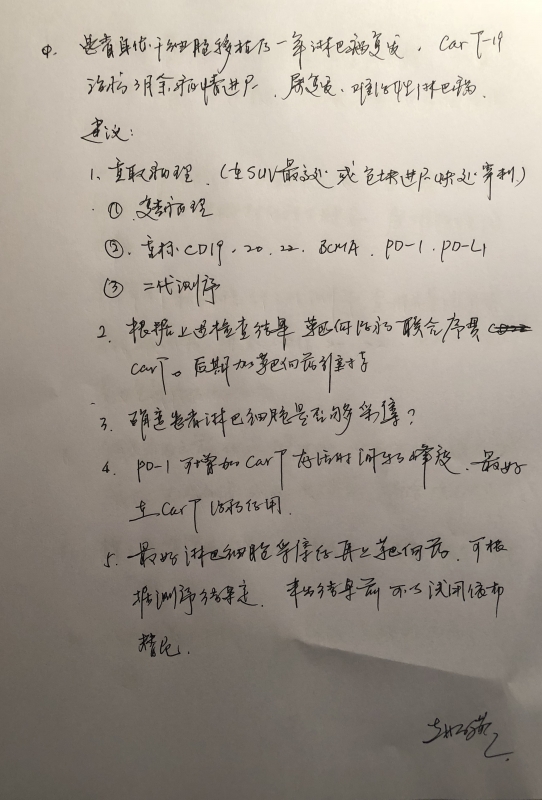 患者自体干细胞移植后一年淋巴瘤复发，CarT-19
治疗3月余病情进展，属复发、难治性淋巴瘤.
建议:
1、重取病理.（在SUV最高处或包块进展快处穿刺）
① 病理
②. 重标CD19、20、22、BCMA、PD-1、PD-L1
③ 二代测序
2、根据上述检查结果 靶向治疗联合序贯
CarT。后期加靶向药维持
3、确定患者淋巴细胞是否够采集?
4、PD-1 可增加CarT存活时间和峰度、最好
在CarT治疗后用.
5、最好淋巴细胞采集后再上靶向药、可根
据测序结果定. 未出结果前可以试用依布
替尼.